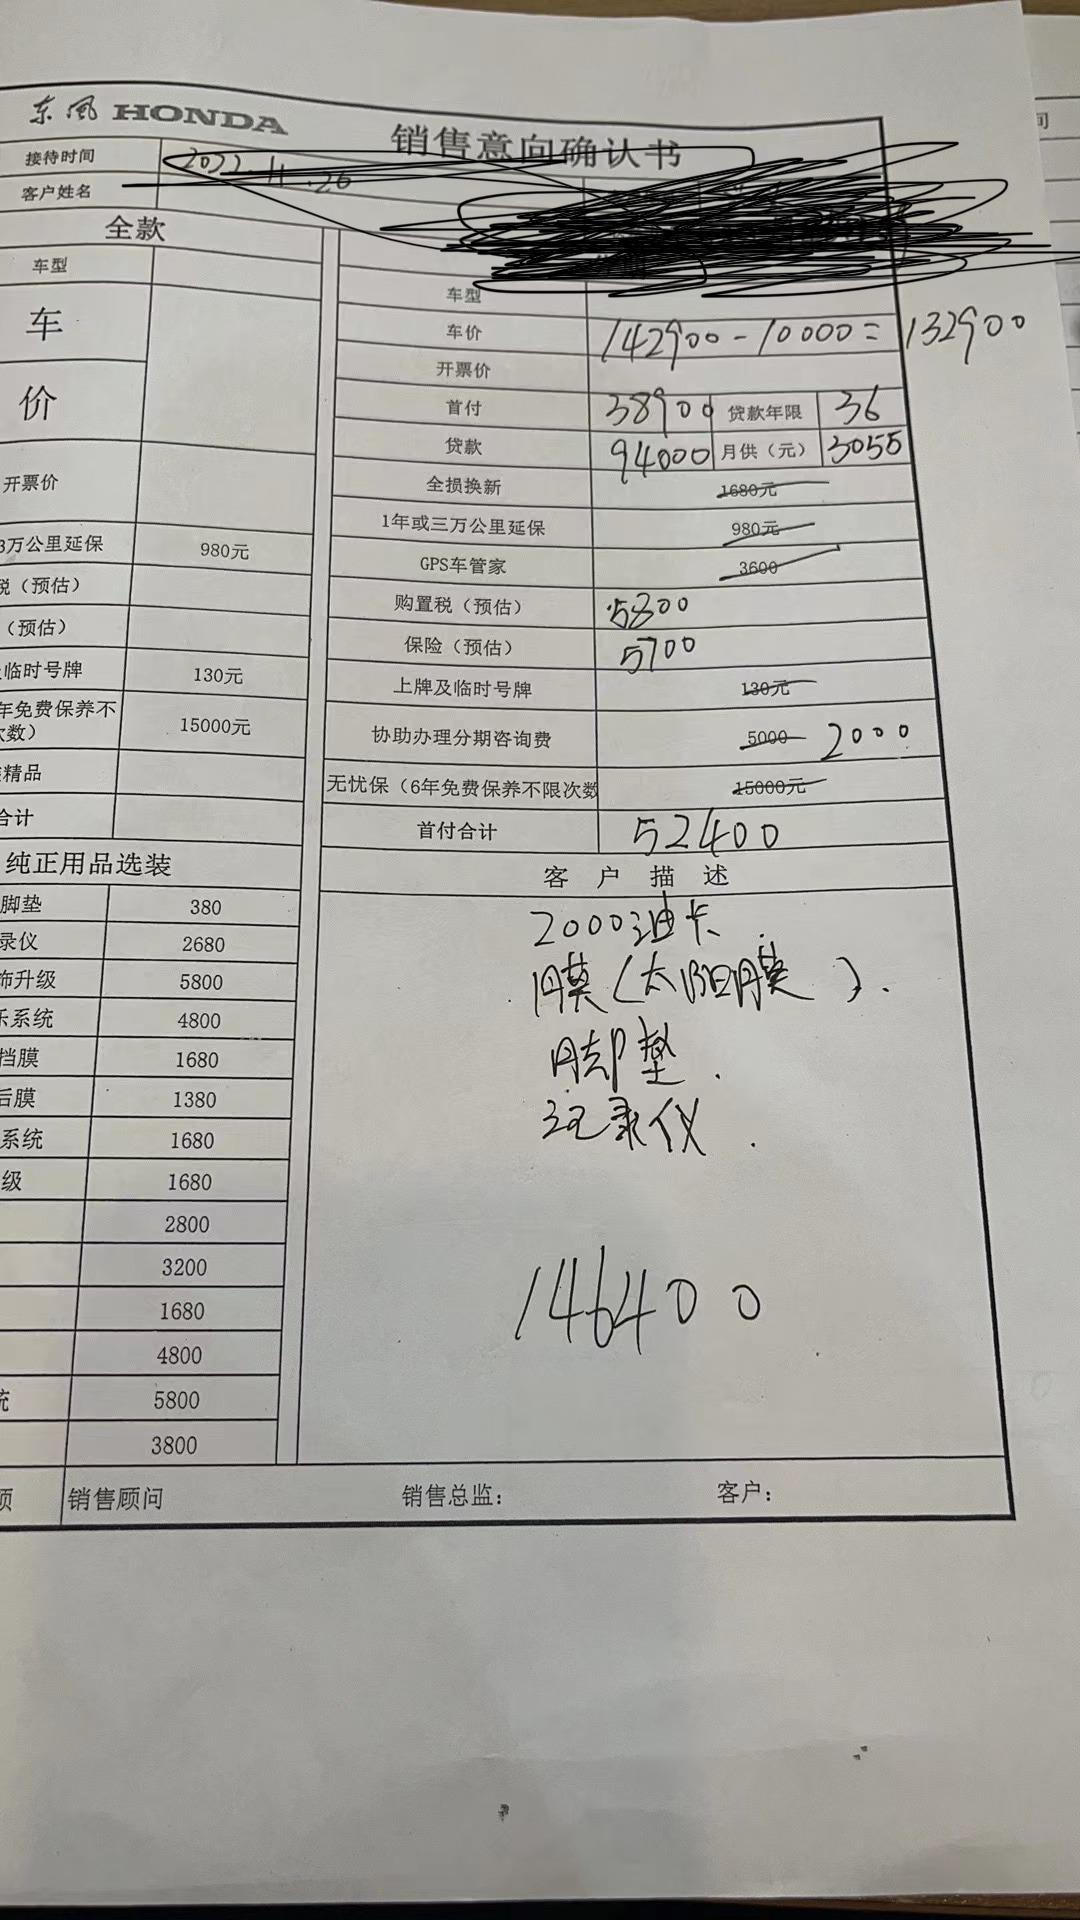 东风 HONDA
销售意向确认书
接待时间 2022.11.26
客户姓名
全款
车型
车
价
开票价
3万公里延保 980元
税（预估）
（预估）
临时号牌 130元
年免费保养不 15000元
次数）
精品
合计
纯正用品选装
脚垫 380
录仪 2680
饰升级 5800
乐系统 4800
挡膜 1680
后膜 1380
系统 1680
级 1680
2800
3200
1680
4800
统 5800
3800
车型
车价 142900-10000=132900
开票价
首付 38900 贷款年限 36
贷款 94000 月供（元） 3055
全损换新 1680元
1年或三万公里延保 980元
GPS车管家 3600
购置税（预估） 5800
保险（预估） 5700
上牌及临时号牌 130元
协助办理分期咨询费 5000 2000
无忧保（6年免费保养不限次数 15000元
首付合计 52400
客户描述
2000油卡.
膜（太阳膜）.
脚垫.
记录仪.
146400
销售顾问 销售总监： 客户：
间